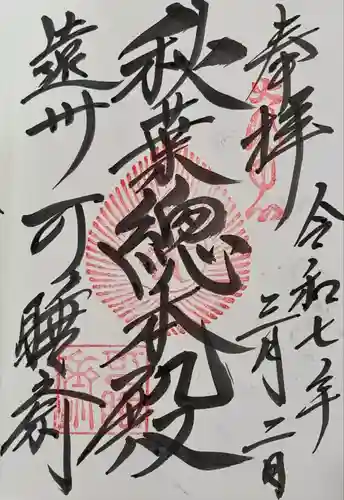 奉拝
令和七年
二月二日
秋葉總本殿
遠州 可睡斎